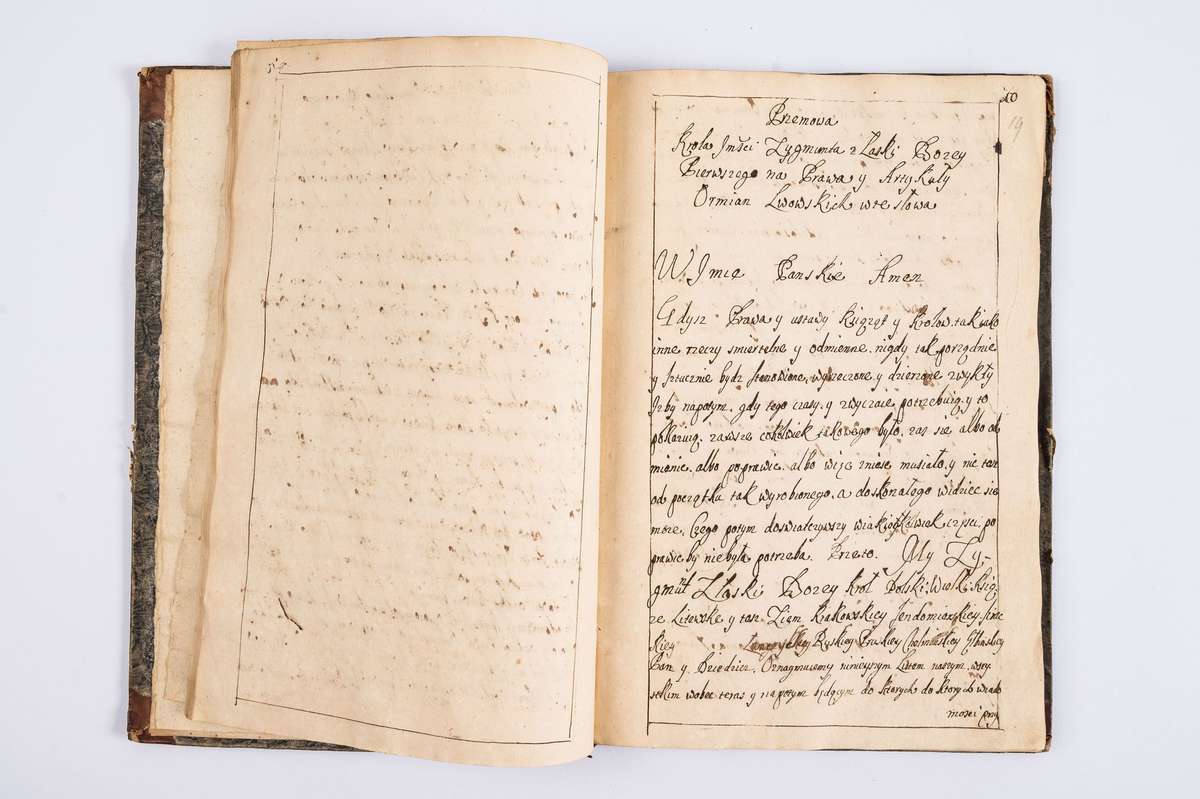 10
19
Przemowa
Krola Jmści Zygmunta z Łaski Bozey
Pierwszego na Prawa y Artykuły
Ormian Lwowskich wte słowa
W Jmię Panskie Amen
Gdysz Prawa y ustawy Xiąząt y Krolow, tak iako
inne rzeczy smiertelne y odmienne, nigdy tak porządnie
y sztucznie bydz stanowione, wyrzeczone, y dzierzane zwykły
Jzby napotym, gdy tego czasy, y zwyczaie potrzebuią, y to
pokazuią, zawsze cokolwiek takowego było, zas się albo od
mienic, albo poprawic, albo więc zniesc musiało, y nic ten
od początku tak wyrobionego, a doskonałego widziec się
moze, Czego potym doswiatczywszy wiakieykolwiek częsci, po
prawic by niebyła potrzeba. Przeto. My Zy-
gmunt Złaski Bozey Krol Polski, Wielki Xią-
ze Litewske y tesz Ziem Krakowskiey Sendomirskiey, Sira
kiey Łanczyckiey Ruskiey Pruskiey Chełminskiey
Pan y Dziedzic. Oznaymuiemy ninieyszym Listem naszym, wszy
stkim wobec teras y napotym będącym do ktorych do ktorych wiado
mosci przy